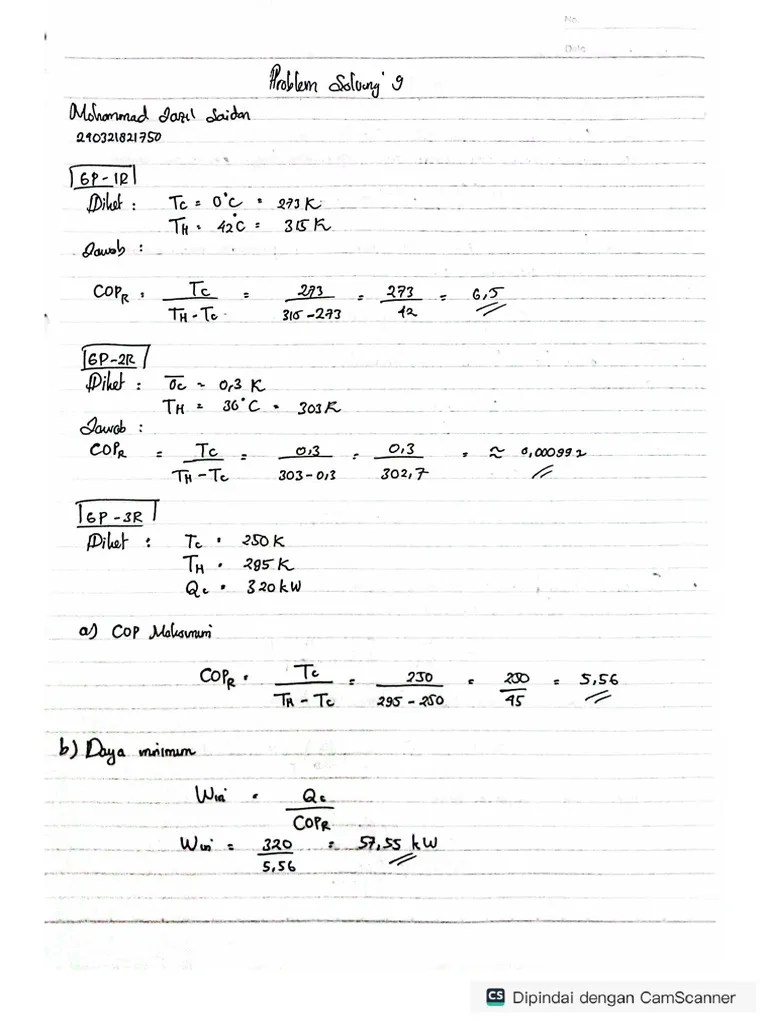 No.
Date
Problem Solving 9
Mohammad Saidan
290321821750
6P-1R
Diket : Tc = 0°C = 273 K
TH = 42°C = 315 K
Jawab :
COPR = Tc / TH - Tc = 273 / 315 - 273 = 273 / 42 = 6,5
6P-2R
Diket : Tc = 0,3 K
TH = 30°C = 303 K
Jawab :
COPR = Tc / TH - Tc = 0,3 / 303 - 0,3 = 0,3 / 302,7 = ≈ 0,000992
6P-3R
Diket : Tc = 250 K
TH = 295 K
Qc = 320 kW
a) COP Maksimum
COPR = Tc / TH - Tc = 250 / 295 - 250 = 250 / 45 = 5,56
b) Daya minimum
Win = Qc / COPR
Win = 320 / 5,56 = 57,55 kW
CS Dipindai dengan CamScanner